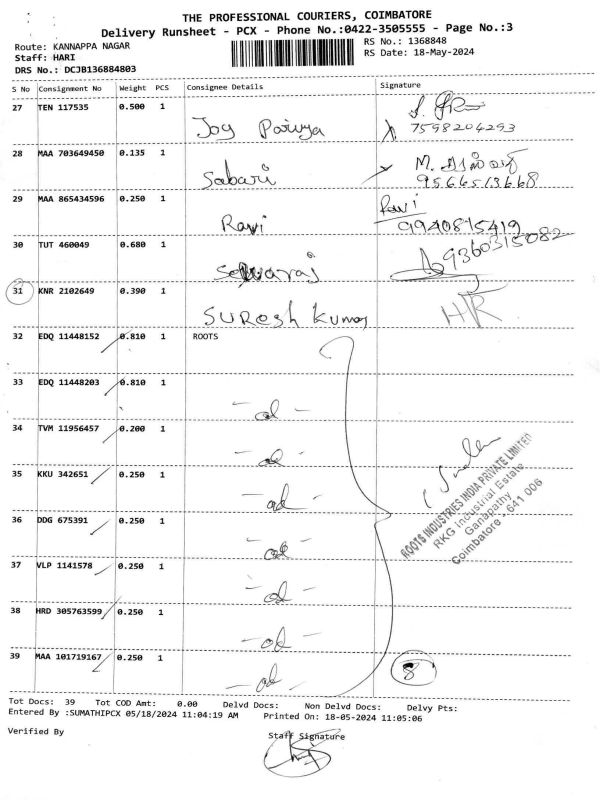 THE PROFESSIONAL COURIERS, COIMBATORE
Delivery Runsheet - PCX - Phone No.:0422-3505555 - Page No.:3
Route: KANNAPPA NAGAR
RS No.: 1368848
Staff: HARI
RS Date: 18-May-2024
DRS No.: DCJB136884803
S No Consignment No Weight PCS Consignee Details Signature
27 TEN 117535 0.500 1
Joy Pariya
7598204293
28 MAA 703649450 0.135 1
Sabari
M.
9566513668
29 MAA 865434596 0.250 1
Ravi
Ravi
9940815419
30 TUT 460049 0.680 1
Selvaraj
9360315082
31 KNR 2102649 0.390 1
SURESH Kumar
HR
32 EDQ 11448152 0.810 1 ROOTS
33 EDQ 11448203 0.810 1
- do -
34 TVM 11956457 0.200 1
- do -
35 KKU 342651 0.250 1
- do -
36 DDG 675391 0.250 1
- do -
37 VLP 1141578 0.250 1
- do -
38 HRD 305763599 0.250 1
- do -
39 MAA 101719167 0.250 1
- do -
ROOTS INDUSTRIES INDIA PRIVATE LIMITED
RKG Industrial Estate
Ganapathy
Coimbatore - 641 006
8
Tot Docs: 39 Tot COD Amt: 0.00 Delvd Docs: Non Delvd Docs: Delvy Pts:
Entered By :SUMATHIPCX 05/18/2024 11:04:19 AM Printed On: 18-05-2024 11:05:06
Verified By
Staff Signature